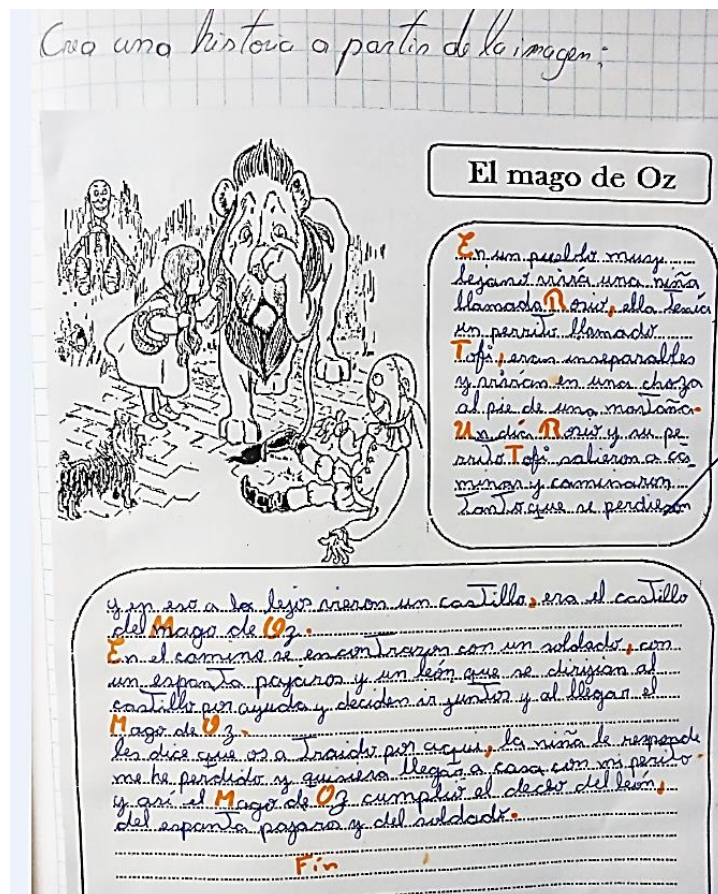 Crea una historia a partir de la imagen:
El mago de Oz
En un pueblo muy
lejano vivía una niña
llamada Rosio, ella tenía
un perrito llamado
Tofi, eran inseparables
y vivían en una choza
al pie de una montaña.
Un día Rosio y su pe
rrito Tofi salieron a ca
minar y caminaron
tanto que se perdieron
y en eso a lo lejos vieron un castillo, era el castillo
del Mago de Oz.
En el camino se encontraron con un soldado, con
un espanta pajaros y un león que se dirigian al
castillo por ayuda y deciden ir juntos y al llegar el
Mago de Oz.
les dice que os a traido por aqui, la niña le responde
me he perdido y quisiera llegar a casa con mi perito.
y así el Mago de Oz cumplio el deceo del león,
del espanta pajaros y del soldado.
Fin